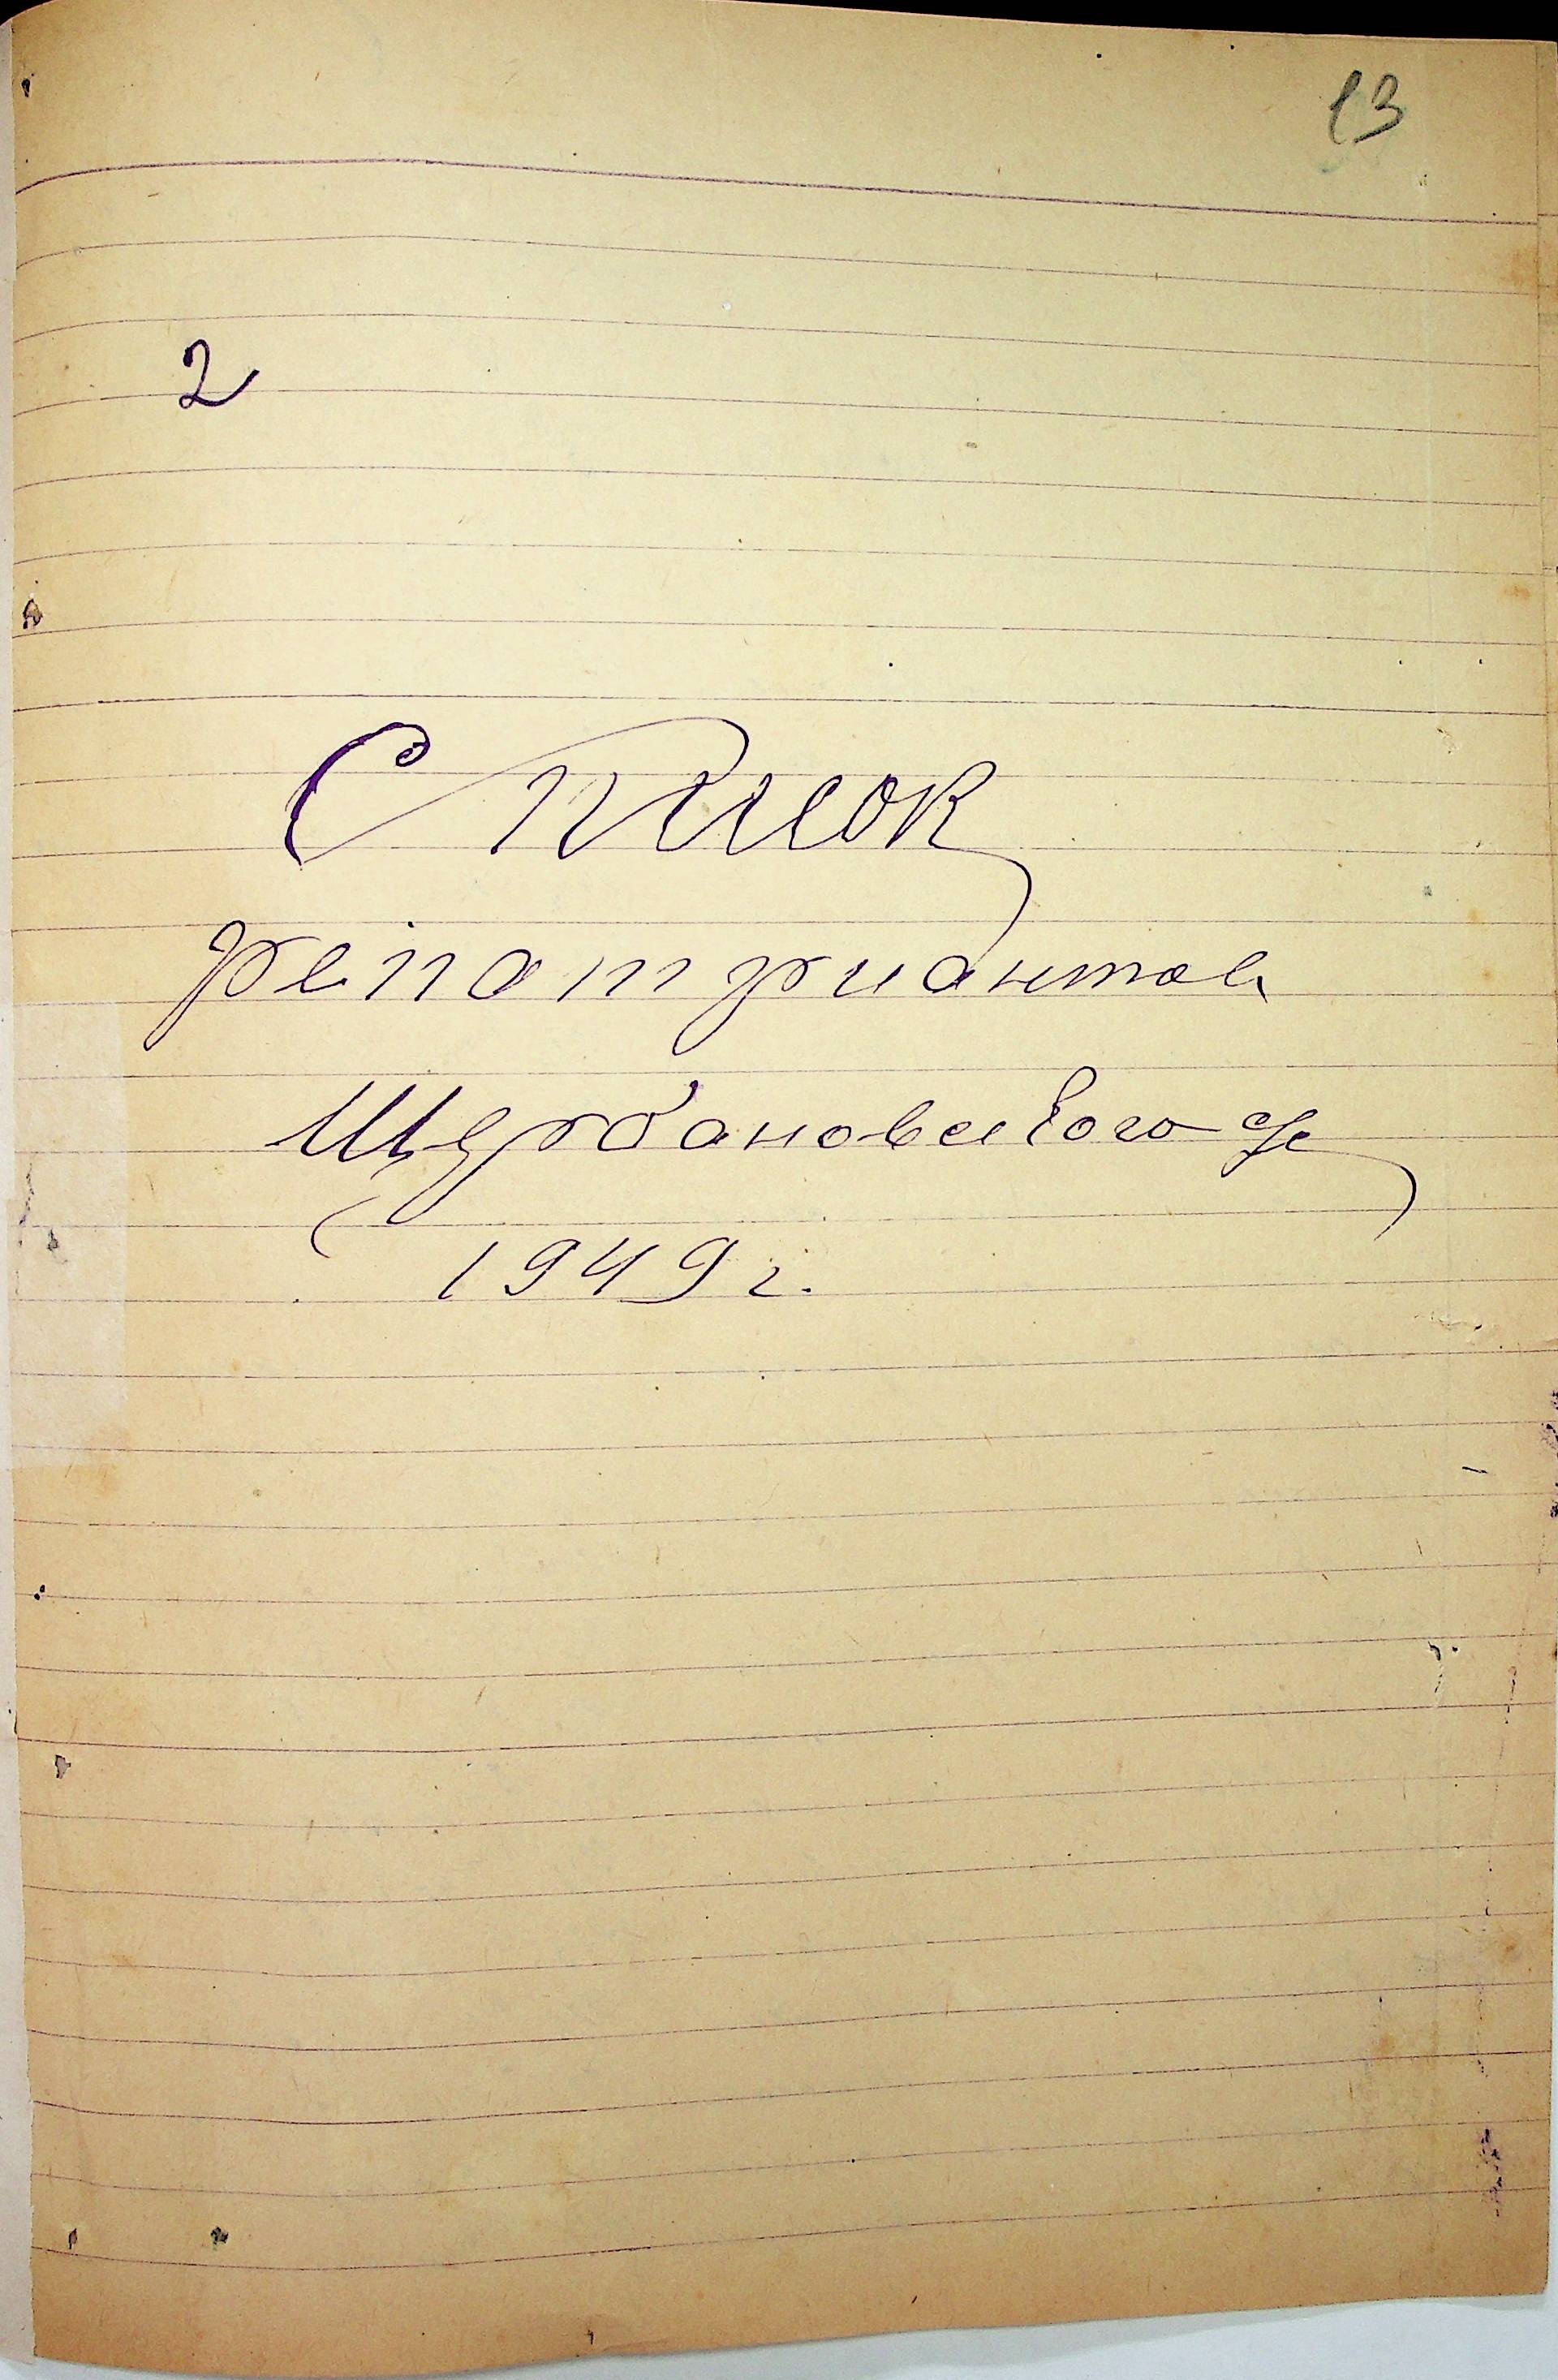 13
2
Список
репатриантов
Щербановского с/с
1949 г.